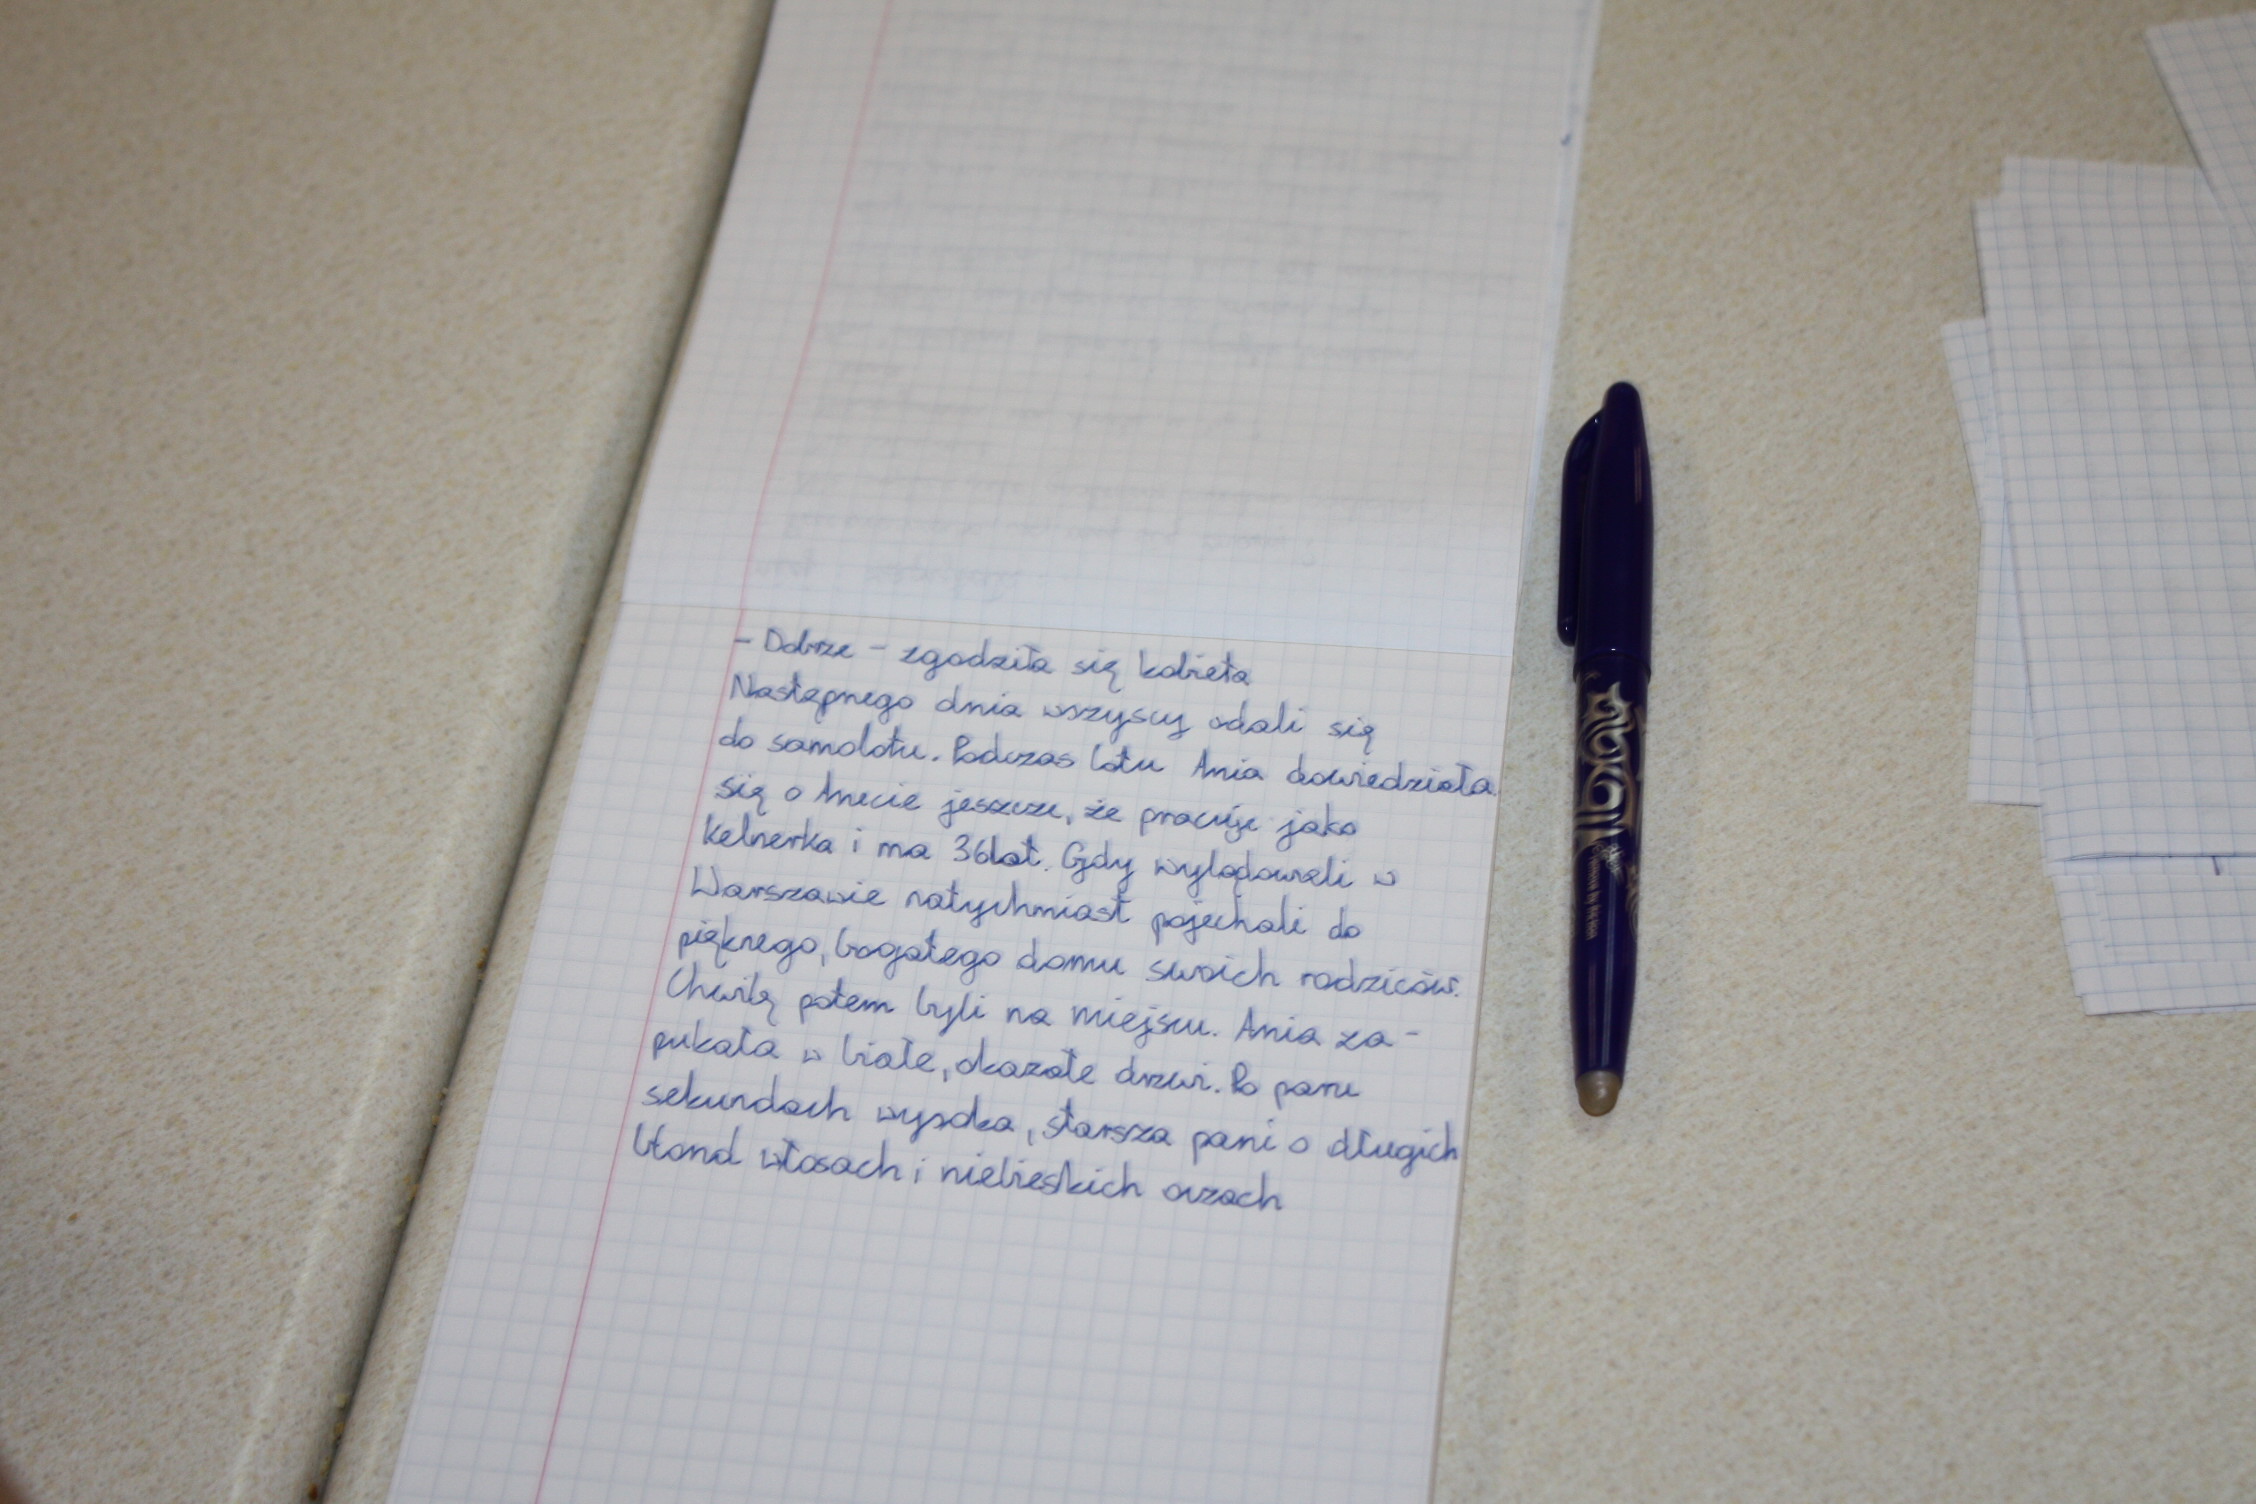 - Dobrze - zgodziła się kobieta
Następnego dnia wszyscy udali się
do samolotu. Podczas lotu Ania dowiedziała
się o Anecie jeszcze, że pracuje jako
kelnerka i ma 36lat. Gdy wylądowali w
Warszawie natychmiast pojechali do
pięknego, bogatego domu swoich rodziców.
Chwilę potem byli na miejscu. Ania za-
pukała w białe, okazałe drzwi. Po paru
sekundach wysoka, starsza pani o długich
blond włosach i niebieskich oczach